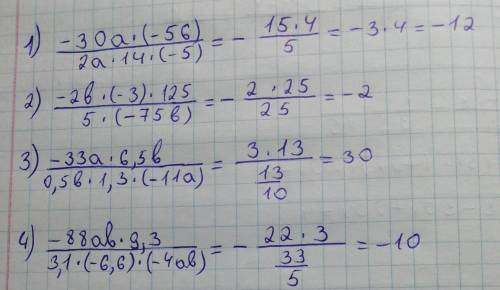 1) \frac{-30a \cdot (-56)}{2a \cdot 14 \cdot (-5)} = - \frac{15 \cdot 4}{5} = -3 \cdot 4 = -12
2) \frac{-2b \cdot (-3) \cdot 125}{5 \cdot (-75b)} = - \frac{2 \cdot 25}{25} = -2
3) \frac{-33a \cdot 6,5b}{0,5b \cdot 1,3 \cdot (-11a)} = \frac{3 \cdot 13}{\frac{13}{10}} = 30
4) \frac{-88ab \cdot 9,3}{3,1 \cdot (-6,6) \cdot (-4ab)} = - \frac{22 \cdot 3}{\frac{33}{5}} = -10